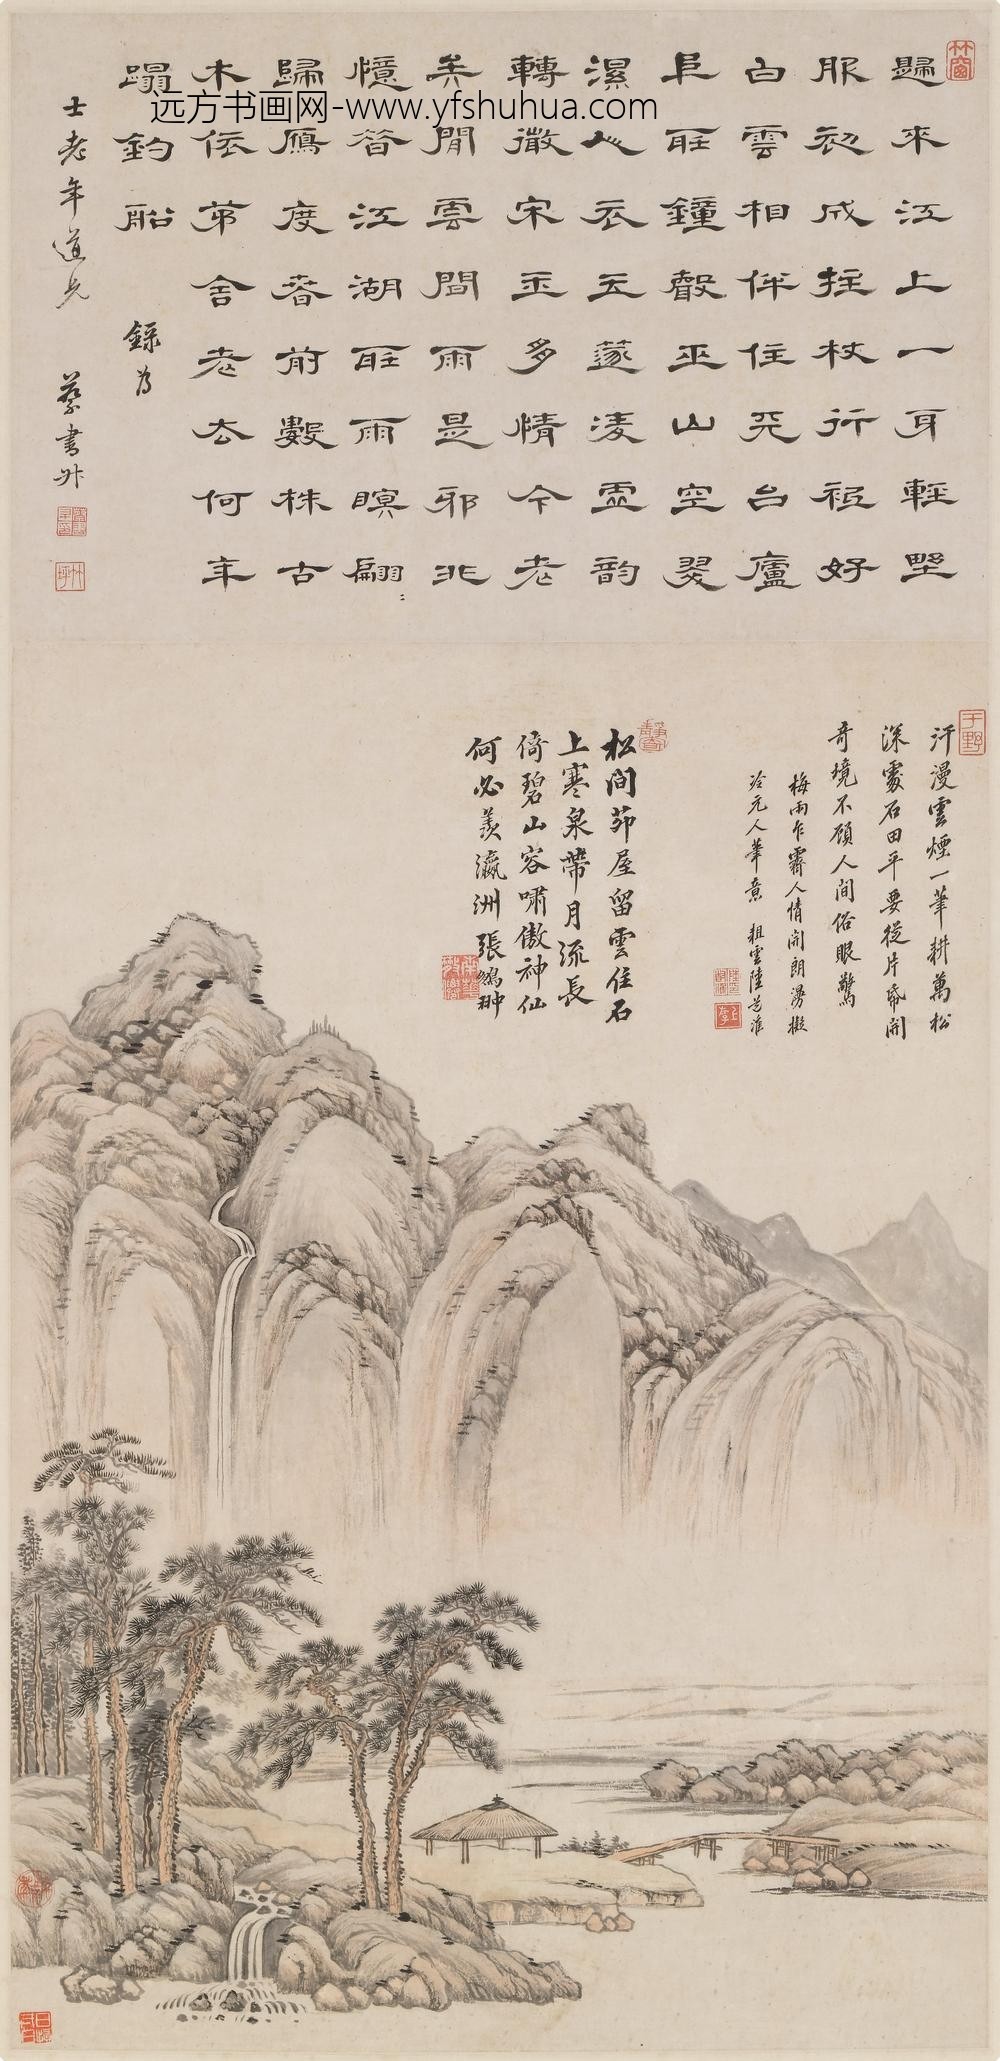 远方书画网-www.yfshuhua.com
竹窗
歸來江上一身輕野
服初成拄杖行祗好
白雲相伴住天台廬
阜聽鐘聲巫山空翠
濕人衣玉篴凌虛韵
轉微宋玉多情今老
矣閒雲閒雨是邪非
憶昔江湖聽雨瞑翩〻
歸鴈度春前數株古
木依茆舍老去何年
蹋釣船 錄為
士老年道兄 蔡書升
于野
汗漫雲煙一筆耕萬松
深處石田平要從片紙開
奇境不顧人間俗眼驚
梅雨乍霽人情開朗漫擬
冷元人筆意 粗雲陸道淮
松間茆屋留雲住石
上寒泉帶月流長
倚碧山容嘯傲神仙
何必羨瀛洲 張鵬翀